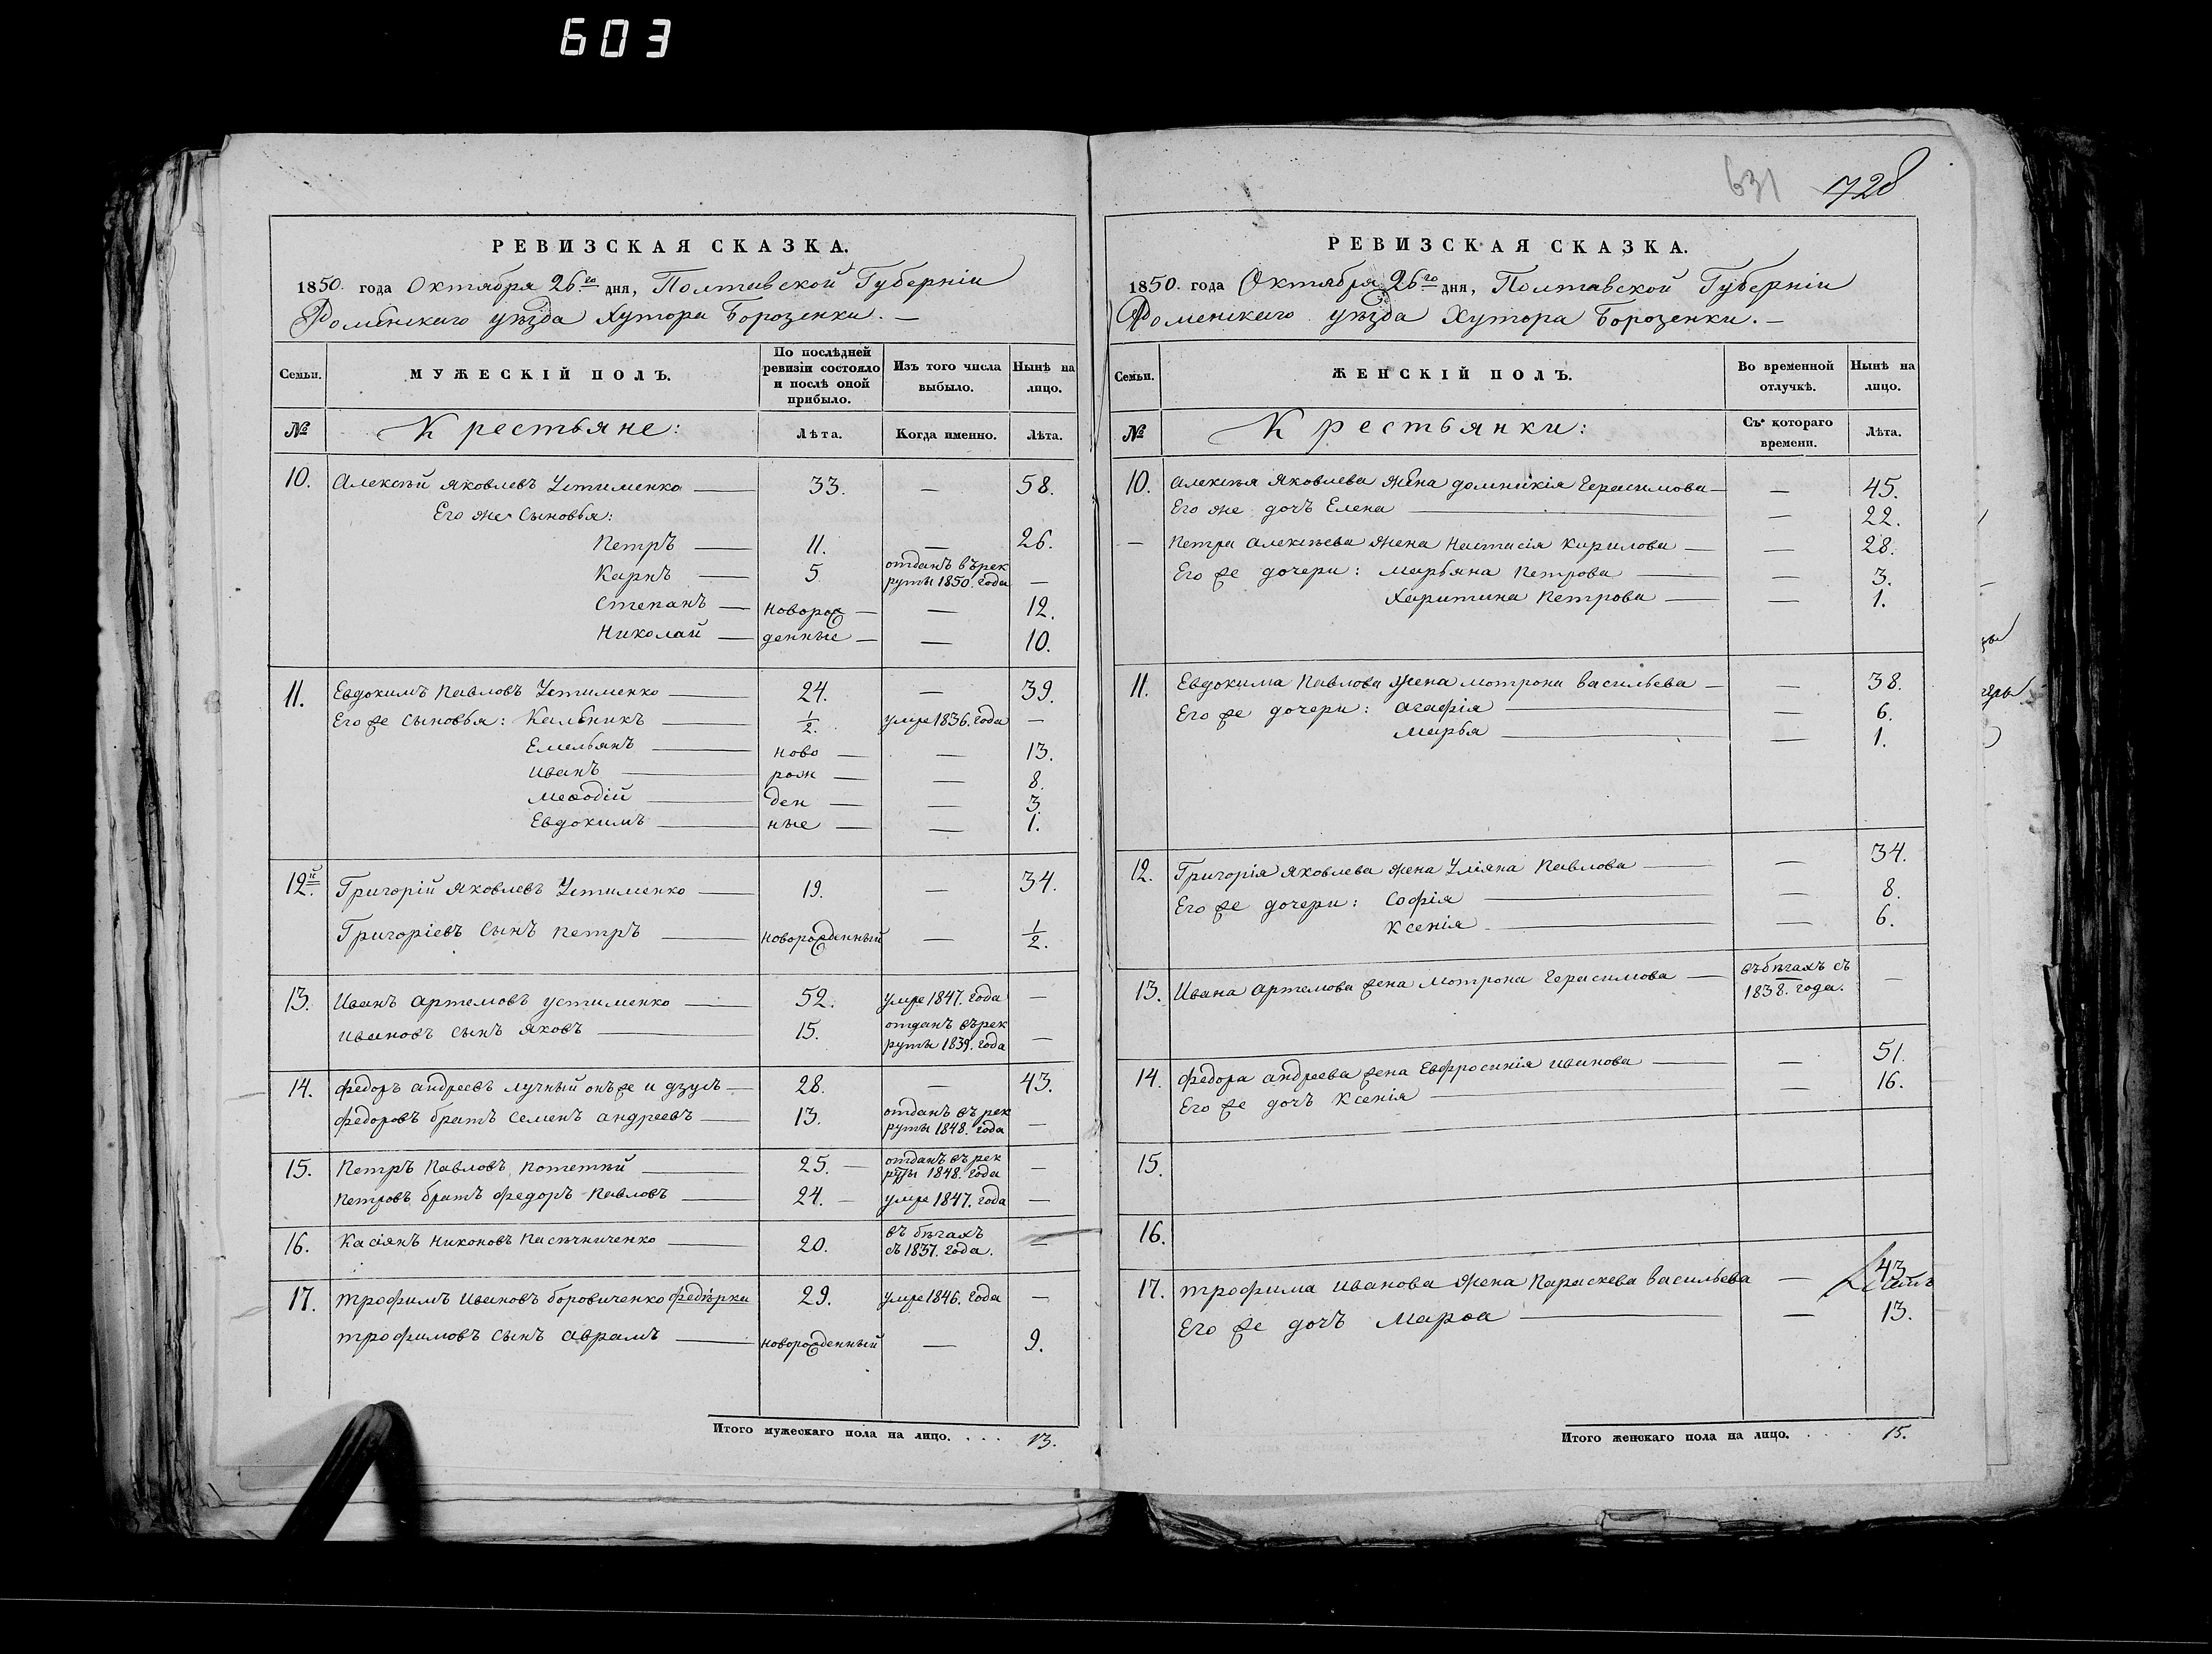 603
РЕВИЗСКАЯ СКАЗКА.
1850. года Октября 26го дня, Полтавской Губерніи
Роменскаго уѣзда Хутора Борозенки. —
Семьи. МУЖЕСКІЙ ПОЛЪ. По послѣдней ревизіи состояло и послѣ оной прибыло. Изъ того числа выбыло. Нынѣ на лицо.
№ Крестьяне: Лѣта. Когда именно. Лѣта.
10. Алексѣй Яковлевъ Устименко — 33. — 58.
Его же Сыновья:
Петръ — 11. — 26.
Карпъ — 5 отданъ въ рекруты 1850. года —
Степанъ — новорож — — 12.
Николай — денные — — 10.
11. Евдокимъ Павловъ Устименко — 24. — 39.
Его же Сыновья: Кальникъ — 1/2. умре 1836. года —
Емельянъ — ново — — 13.
Иванъ — рож — — 8.
Меѳодій — ден — — 3.
Евдокимъ — ные — — 1.
12й. Григорій Яковлевъ Устименко — 19. — 34.
Григоріевъ Сынъ Петръ — новорожденный — 1/2.
13. Иванъ Артемовъ Устименко — 52. умре 1847. года —
Ивановъ сынъ Яковъ — 15. отданъ въ рекруты 1839. года —
14. Федоръ Андреевъ Лучный онъ же и Дзусъ — 28. — 43.
Федоровъ братъ Семенъ Андреевъ — 13. отданъ въ рекруты 1848. года —
15. Петръ Павловъ Потетый — 25. — отданъ въ рекруты 1848. года —
Петровъ братъ Федоръ Павловъ — 24. — умре 1847. года —
16. Касіянъ Никоновъ Пасѣчниченко — 20. въ бѣгахъ съ 1837. года. —
17. Трофимъ Ивановъ Боровиченко Федѣрка 29. умре 1846. года —
Трофимовъ сынъ Аврамъ — новорожденный — 9.
Итого мужескаго пола на лицо. . . . 13.
631 728
РЕВИЗСКАЯ СКАЗКА.
1850. года Октября 26го дня, Полтавской Губерніи
Роменскаго уѣзда Хутора Борозенки. —
Семьи. ЖЕНСКІЙ ПОЛЪ. Во временной отлучкѣ. Нынѣ на лицо.
№ Крестьянки: Съ котораго времени. Лѣта.
10. Алексѣя Яковлева жена Домникія Герасимова — — 45.
Его же дочь Елена — — 22.
— Петра Алексѣева жена Настасія Кирилова — — 28.
Его же дочери: Марьяна Петрова — — 3.
Харитина Петрова — — 1.
11. Евдокима Павлова жена Мотрона Васильева — — 38.
Его же дочери: Агафія — — 6.
Марья — — 1.
12. Григорія Яковлева жена Уліяна Павлова — — 34.
Его же дочери: Софія — — 8.
Ксенія — — 6.
13. Ивана Артемова жена Мотрона Герасимова — въ бѣгахъ съ 1838. года. —
14. Федора Андреева жена Евфросинія Иванова — — 51.
Его же дочь Ксенія — — 16.
15.
16.
17. Трофима Иванова жена Параскева Васильева — 43
Его же дочь Марѳа — — 13.
Итого женскаго пола на лицо. . . . 15.